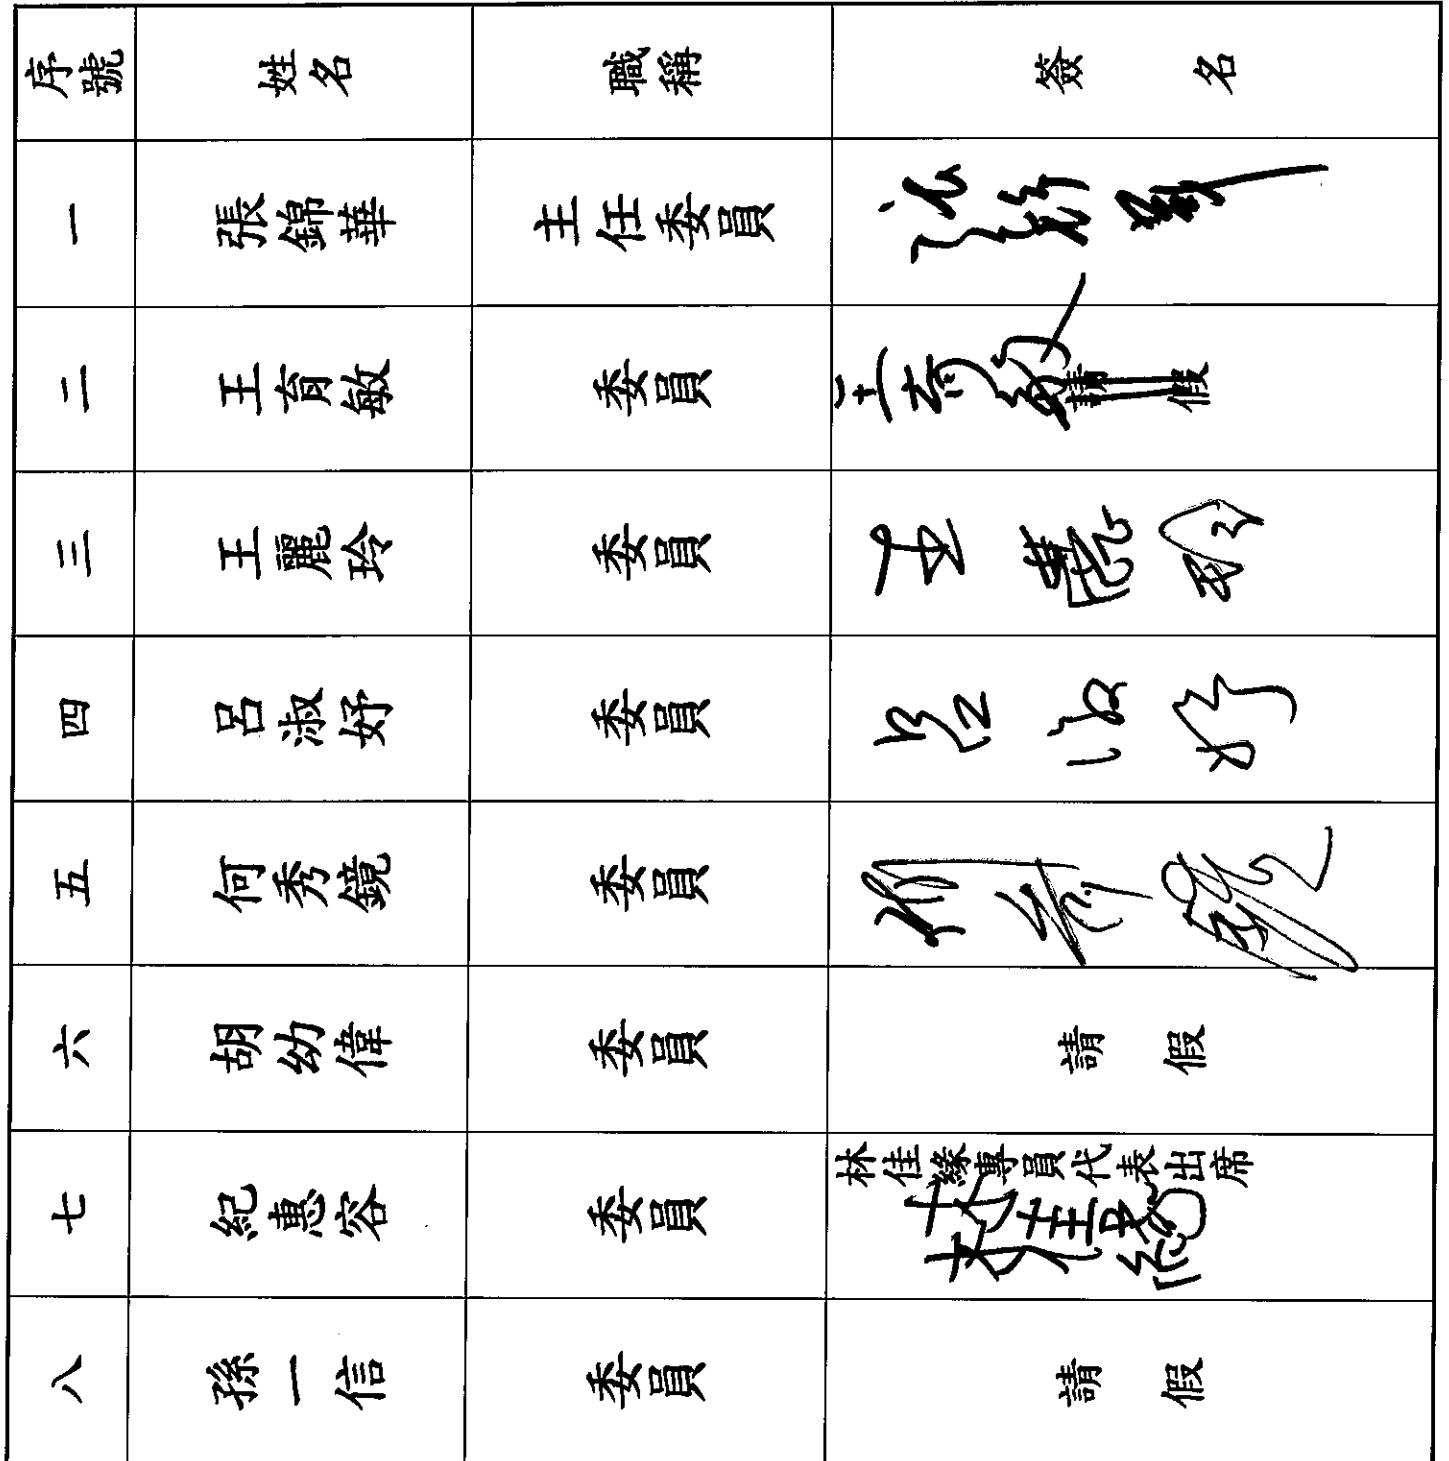 序號 姓名 職稱 簽名
一 張錦華 主任委員 張錦華
二 王育敏 委員 王育敏 請假
三 王麗玲 委員 王麗玲
四 呂淑妤 委員 呂淑妤
五 何秀鏡 委員 何秀鏡
六 胡幼偉 委員 請假
七 紀惠容 委員 林佳緣專員代表出席
林佳緣
八 孫一信 委員 請假